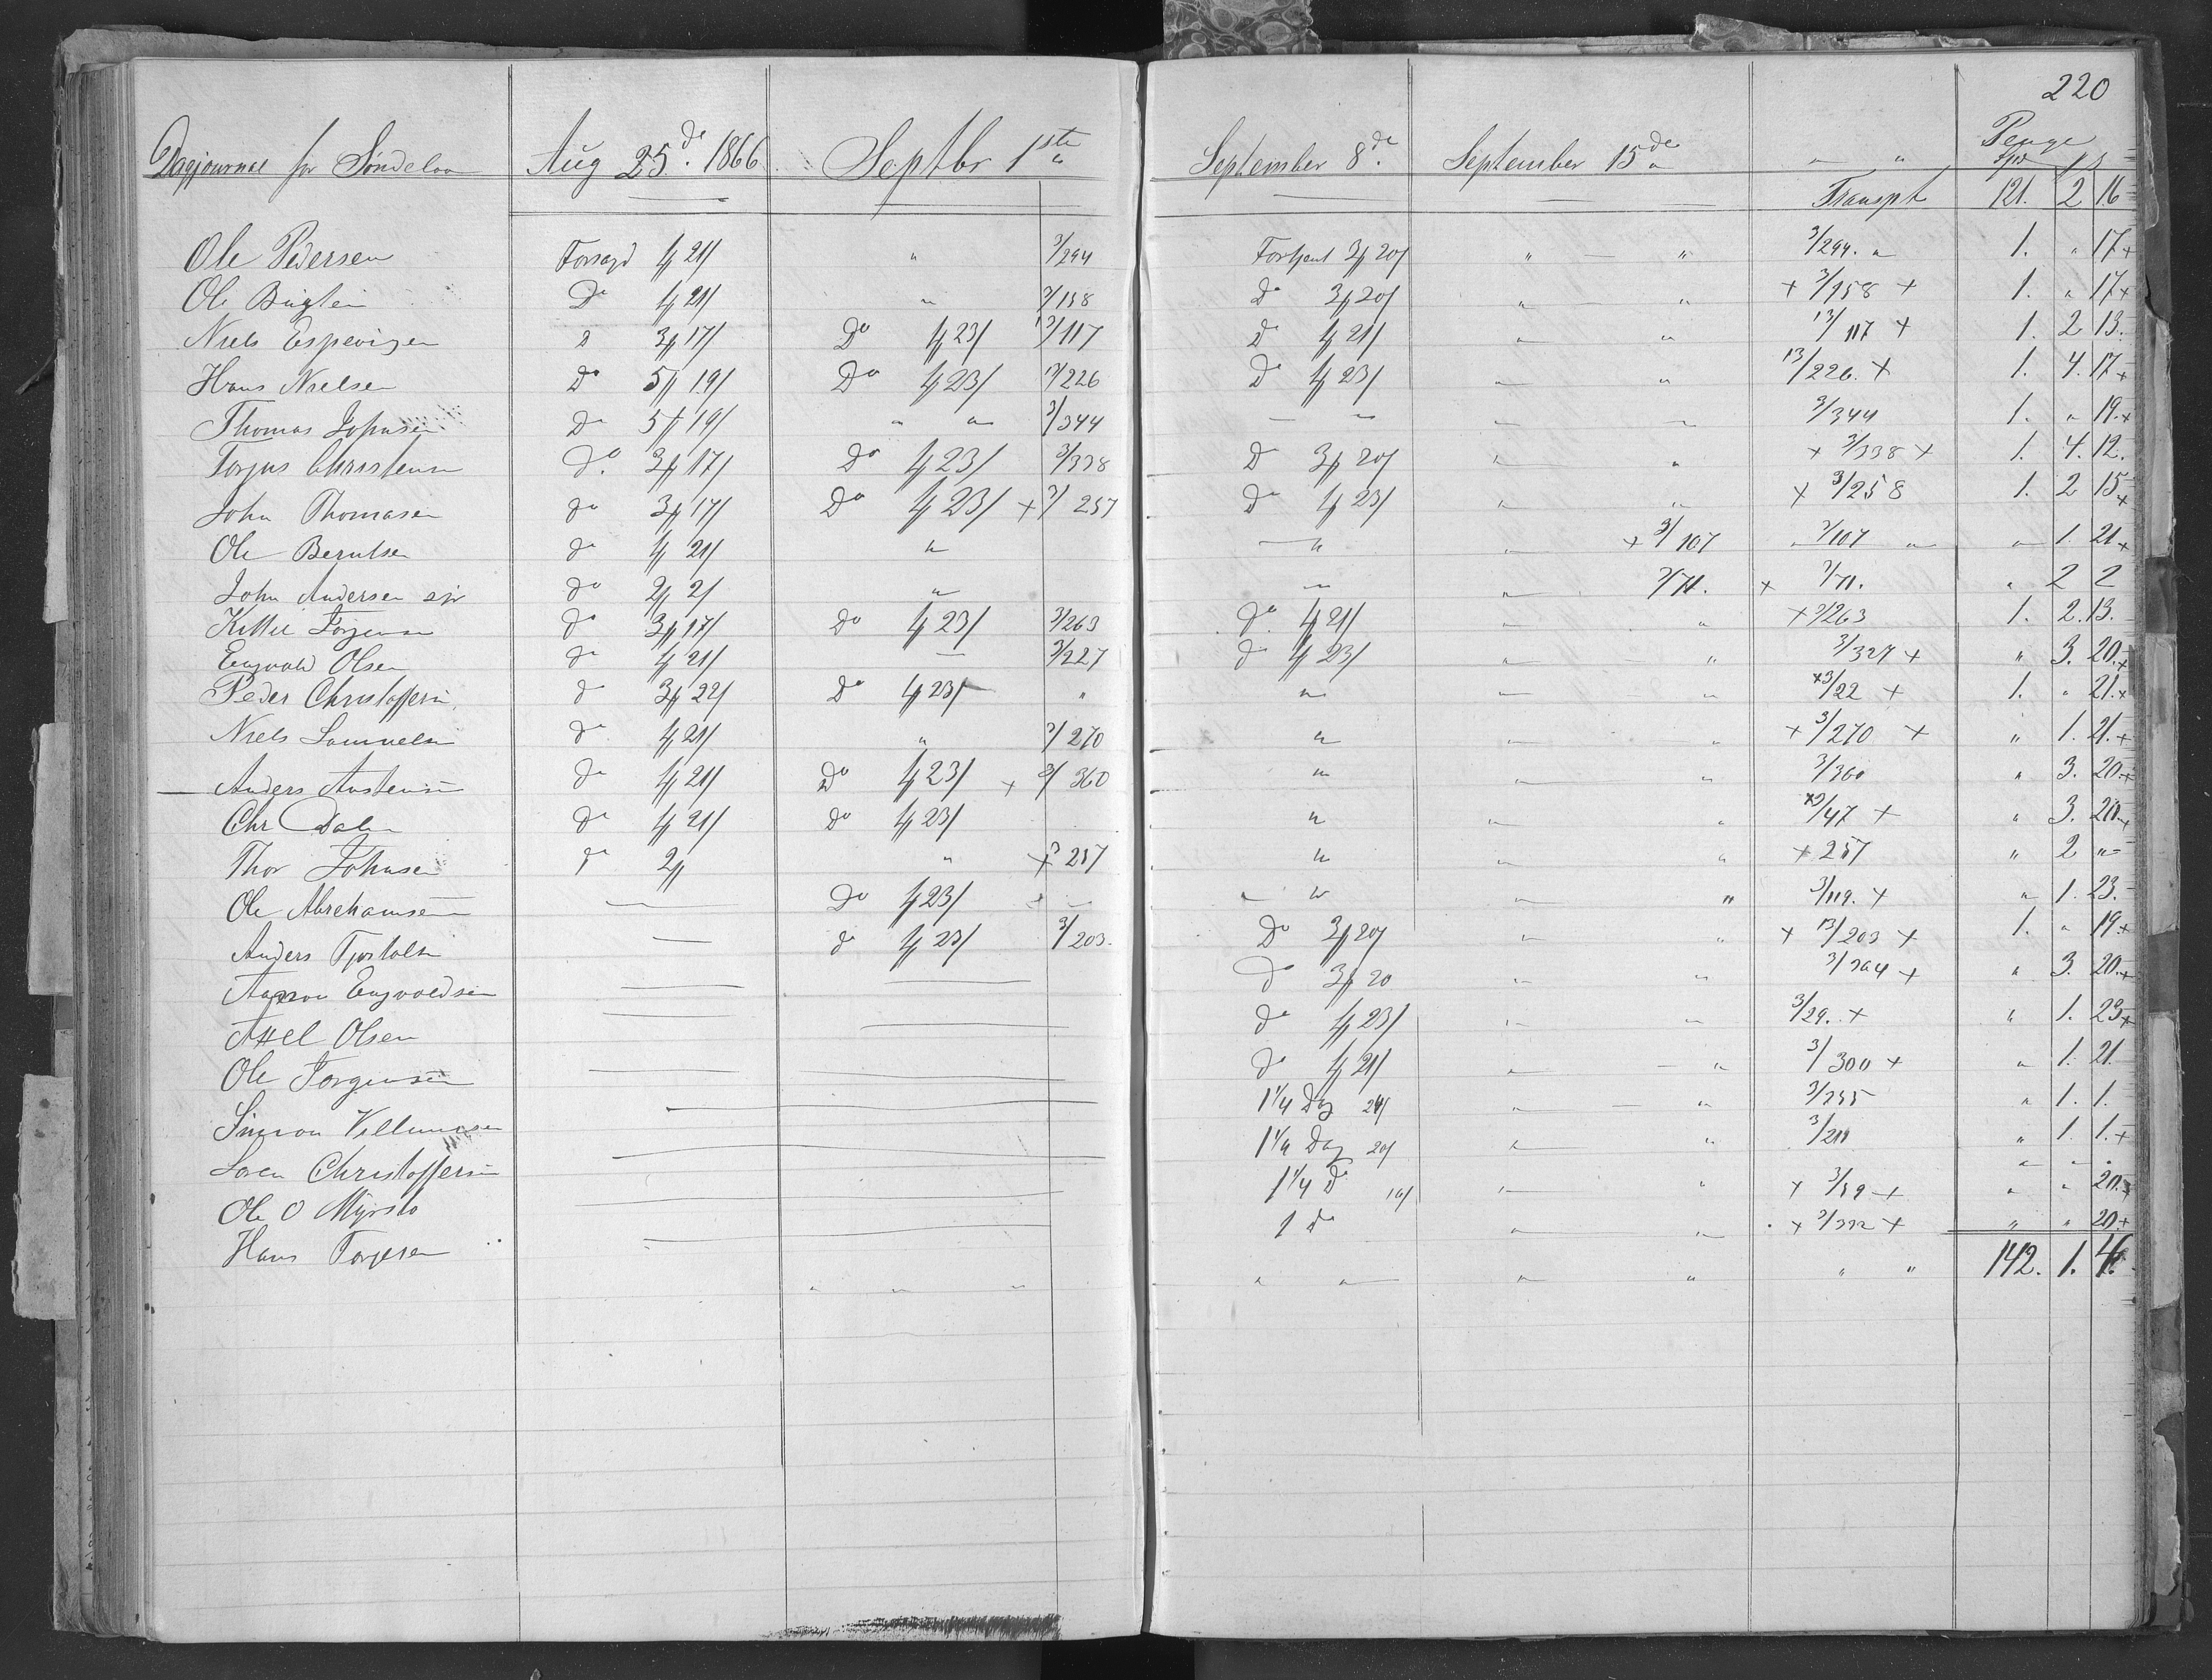 220
Dagjournal for Søndelon Aug 25de 1866 Septbr 1ste " September 8de September 15de " " " Penge
Spd
Transpt 121. 2 16
Ole Pedersen Forsagd 1/ 21/ " 3/294 Fortjent 3/ 20/ " — " 3/294. " 1. " 17 +
Ole Do 1/ 21/ " 3/158 Do 3/ 20/ " — " + 3/158 + 1. " 17 +
Niels Espevigen 3/ 17/ Do 1/ 23/ 13/117 Do 1/ 21/ " " 13/117 + 1. 2 13.
Hans Nielsen Do 5/ 19/ Do 1/ 23/ 3/226 Do 1/ 23/ " " 13/226. + 1. 4. 17 +
Thomas Johnsen Do 5/ 19/ " " 3/344 — " " " 3/344 1. " 19. +
Torjus Christensen Do 3/ 17/ Do 1/ 23/ 3/338 Do 3/ 20/ " " + 3/338 + 1. 4. 12.
John Thomasen do 3/ 17/ Do 1/ 23/ + 3/257 Do 1/ 23/ " " + 3/258 1. 2 15 +
Ole Berntsen do 1/ 21/ " — " " + 3/107 " 3/107 " " 1. 21 +
John Andersen do 2/ 2/ " — " 3/71. + 3/71. " 2 2
Kittel Torjensen do 3/ 17/ Do 1/ 23/ 3/263 do 1/ 21/ " " + 3/263 1. 2. 13.
Engvald Olsen do 1/ 21/ — 3/227 do 1/ 23/ " " 3/327 + " 3. 20. +
Peder Christoffersen do 3/ 22/ Do 1/ 23/ " " " " + 3/22 + 1. " 21. +
Niels Samuelsen do 1/ 21/ " 3/270 " " " + 3/270 + " 1. 21. +
— Anders Austensen do 1/ 21/ Do 1/ 23/ + 3/360 " " " 3/360 " 3. 20. +
Chr Dalen do 1/ 21/ Do 1/ 23/ " " " + 3/47 + " 3. 20. +
Thor Johnsen do 2/ " + 257 " " " + 257 " 2 "
Ole Abrehamsen — Do 1/ 23/ " " " " 3/119. + " 1. 23.
Anders Tjostolsen — do 1/ 23/ 3/203. Do 3/ 20/ " " + 13/203 + 1. " 19. +
Engvoldsen — — Do 3/ 20 " " 3/204 + " 3. 20. +
Axel Olsen — — do 1/ 23/ " " 3/29. + " 1. 23 +
Ole Torgensen — — do 1/ 21/ " — " 3/300 + " 1. 21
Simon — 1 1/4 Dag 24/ " — " 3/255 " 1. 1.
Soren Christoffersen — 1 1/4 Dag 20/ " " 3/211 " 1. 1. +
Ole O Myrsto — 1 1/4 D " " + 3/59 + " " 20. +
Hans Torjesen — 1 do " " + 3/332 + " " 20. +
" " " " " " " " " 142. 1. 4.